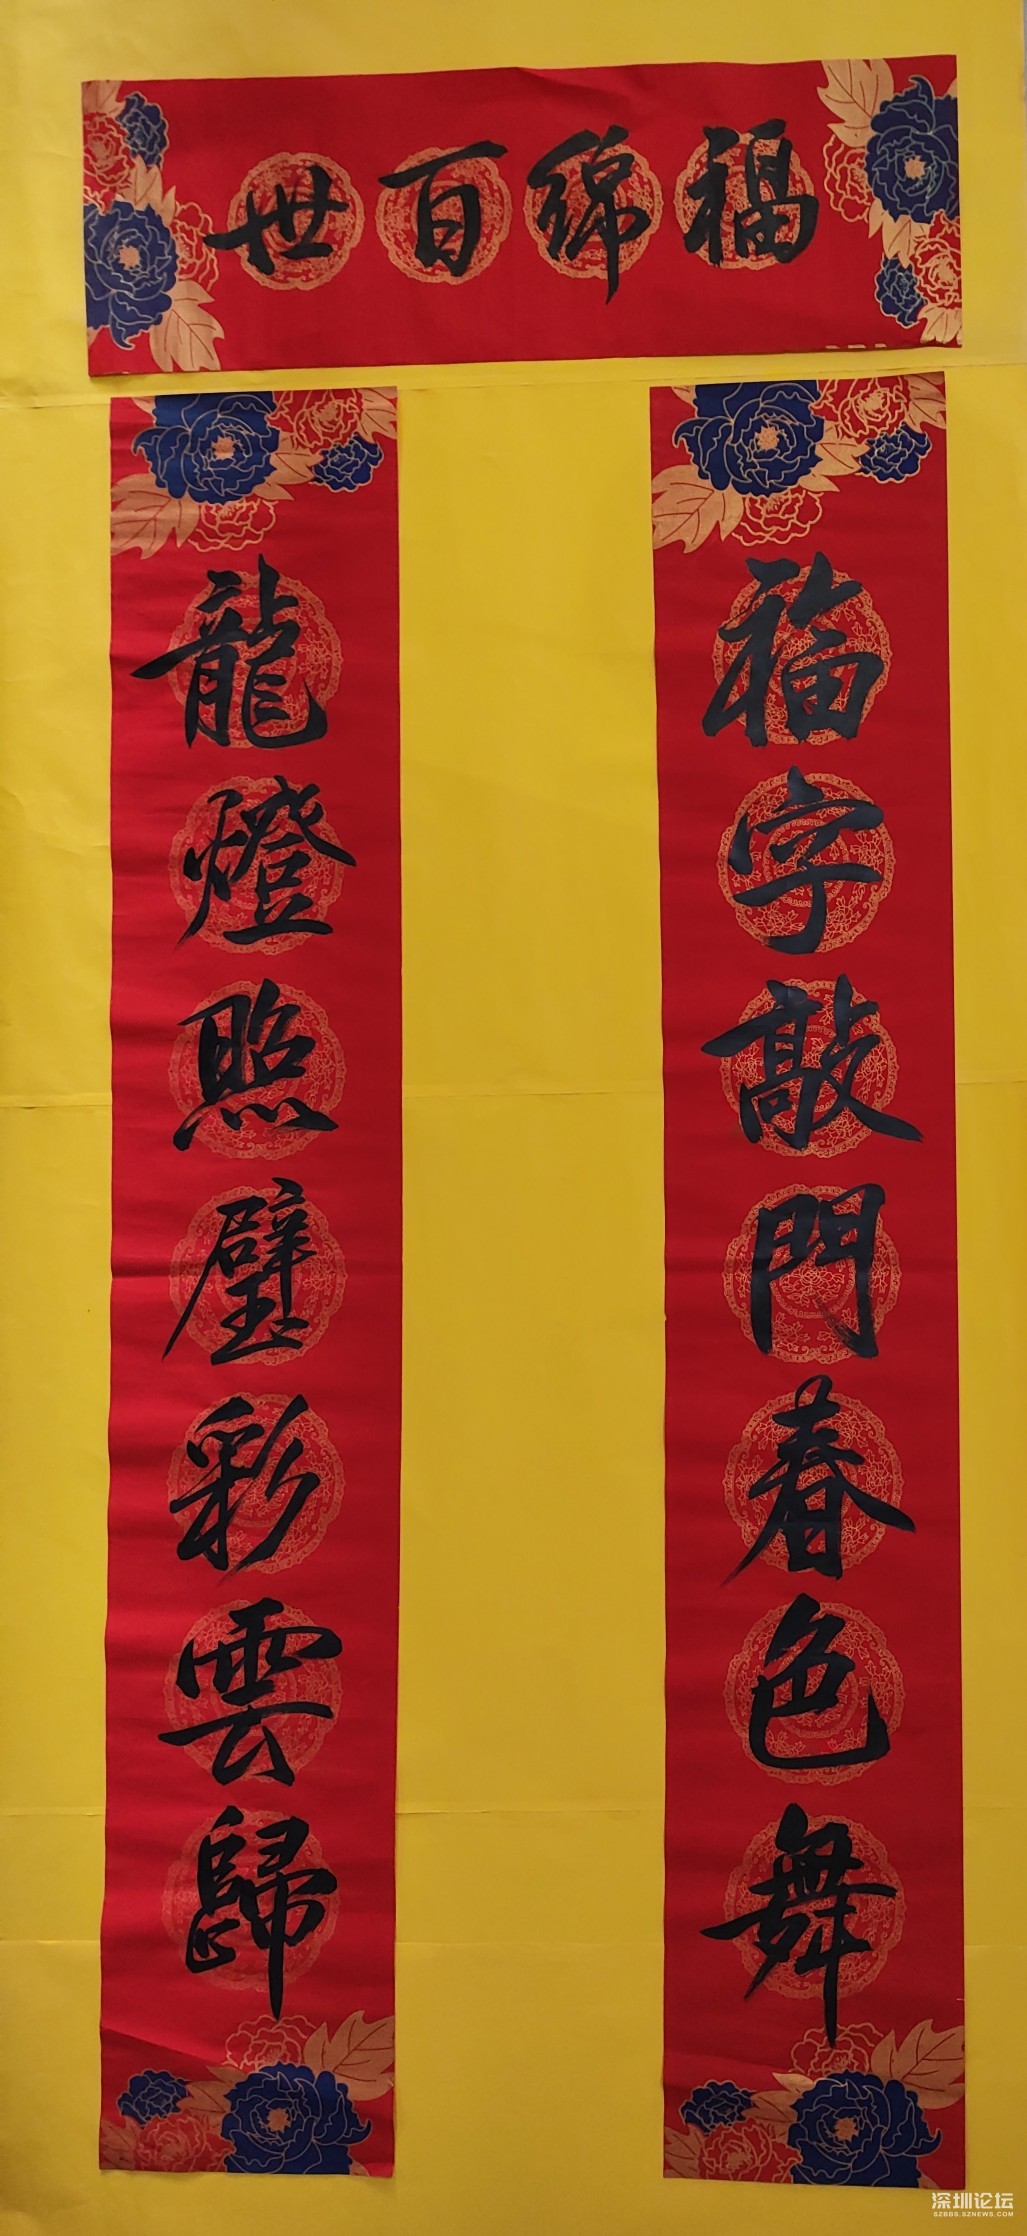 福綿百世
福字敲門春色舞
龍燈照璧彩雲歸
深圳论坛
SZBBS.SZNEWS.COM